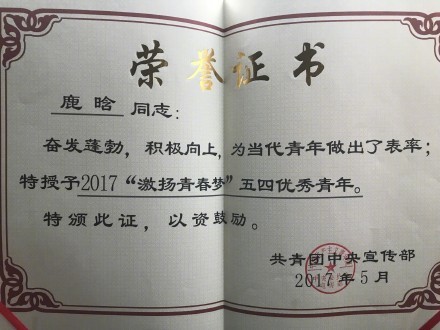 荣誉证书
鹿晗 同志:
奋发蓬勃，积极向上，为当代青年做出了表率；
特授予2017“激扬青春梦”五四优秀青年。
特颁此证，以资鼓励。
共青团中央宣传部
2017年5月